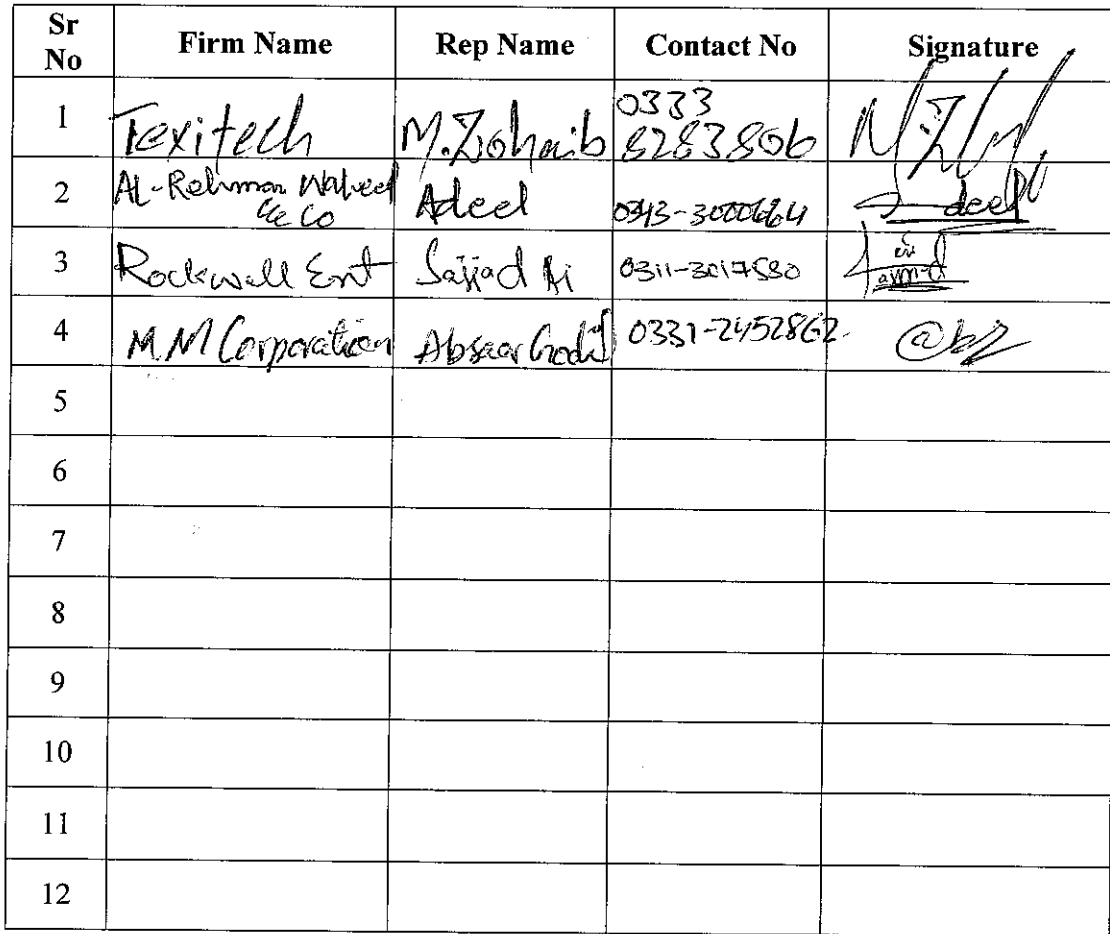 Sr No Firm Name Rep Name Contact No Signature
1 Texitech M.Zohaib 0333 8283806
2 AL-Rehman Waheed & Co Adeel 0343-3000664 Adeel
3 Rockwall Ent Sajjad Ali 0311-3017580
4 M.M Corporation Absaar 0331-2452862
5
6
7
8
9
10
11
12